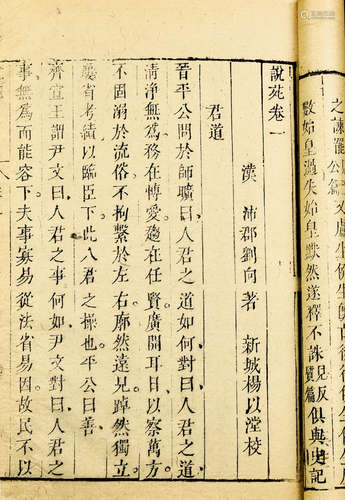 之諫罷
數始皇過失始皇默然遂釋不誅見反質篇俱與史記
說苑卷一
漢 沛郡劉向著 新城楊以漟校
君道
晉平公問於師曠曰人君之道如何對曰人君之道
淸淨無爲務在愽愛趨在任賢廣開耳目以察萬方
不固溺於流俗不拘繫於左右廓然遠見踔然獨立
屢省考績以臨臣下此人君之操也平公曰善
齊宣王謂尹文曰人君之事何如尹文對曰人君之
事無爲而能容下夫事寡易從法省易因故民不以